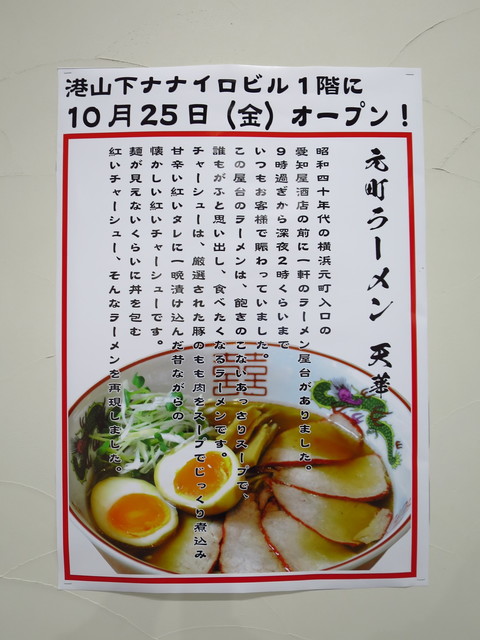 港山下ナナイロビル1階に
10月25日（金）オープン！
元町ラーメン 天華
昭和四十年代の横浜元町入口の
愛知屋酒店の前に一軒のラーメン屋台がありました。
9時過ぎから深夜2時くらいまで
いつもお客様で賑わっていました。
この屋台のラーメンは、飽きのこないあっさりスープで、
誰もがふと思い出し、食べたくなるラーメンです。
チャーシューは、厳選された豚のもも肉をスープでじっくり煮込み
甘辛い紅いタレに一晩漬け込んだ昔ながらの
懐かしい紅いチャーシューです。
麺が見えないくらいに丼を包む
紅いチャーシュー、そんなラーメンを再現しました。
囍